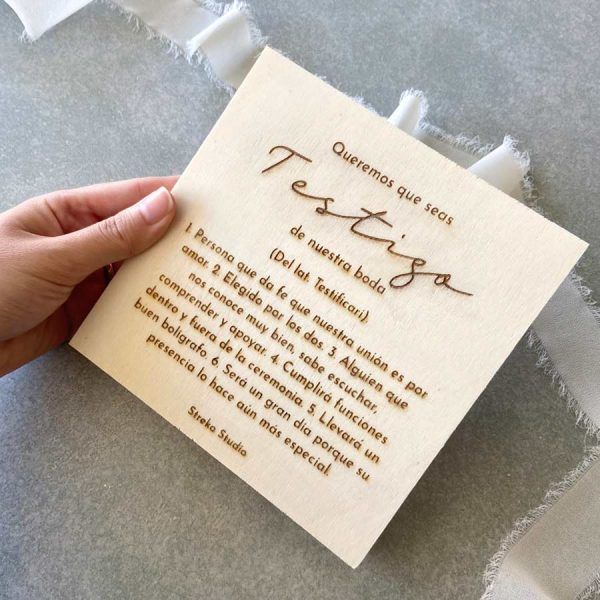 Queremos que seas
Testigo
de nuestra boda
(Del lat. Testificari).
1. Persona que da fe que nuestra unión es por
amor. 2. Elegido por los dos. 3. Alguien que
nos conoce muy bien, sabe escuchar,
comprender y apoyar. 4. Cumplirá funciones
dentro y fuera de la ceremonia. 5. Llevará un
buen bolígrafo. 6. Será un gran día porque su
presencia lo hace aún más especial.
Streko Studio